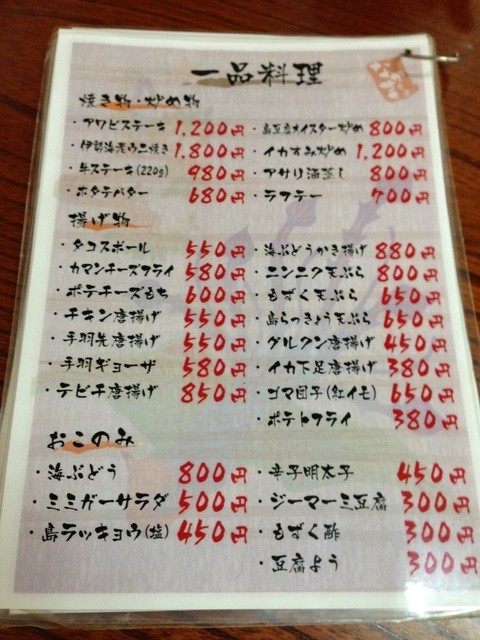 一品料理
焼き物・炒め物
・アワビステーキ 1,200円
・伊勢海老ウニ焼き 1,800円
・牛ステーキ(220g) 980円
・ホタテバター 680円
・島豆腐オイスター炒め 800円
・イカすみ炒め 1,200円
・アサリ酒蒸し 800円
・ラフテー 700円
揚げ物
・タコスボール 550円
・カマンチーズフライ 580円
・ポテチーズもち 600円
・チキン唐揚げ 550円
・手羽先唐揚げ 550円
・手羽ギョーザ 580円
・テビチ唐揚げ 850円
・海ぶどうかき揚げ 880円
・ニンニク天ぷら 800円
・もずく天ぷら 650円
・島らっきょう天ぷら 650円
・グルクン唐揚げ 450円
・イカ下足唐揚げ 380円
・ゴマ団子(紅イモ) 650円
・ポテトフライ 380円
おこのみ
・海ぶどう 800円
・ミミガーサラダ 500円
・島ラッキョウ(塩) 450円
・辛子明太子 450円
・ジーマーミ豆腐 300円
・もずく酢 300円
・豆腐よう 300円